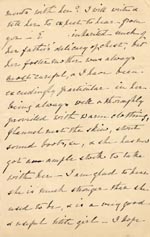 with her? I will write &
tell her to expect to hear from
you – E inherited much of
her father's delicacy of chest, but
her foster mother was always
most careful, & I have been
exceedingly particular in her
being always well & thoroughly
provided with warm clothing,
flannel next the skin, stout
sound boots, &c, & she has now
got an ample stock to take
with her – I am glad to hear
she is much stronger than she
used to be, & is a very good
& useful little girl – I hope